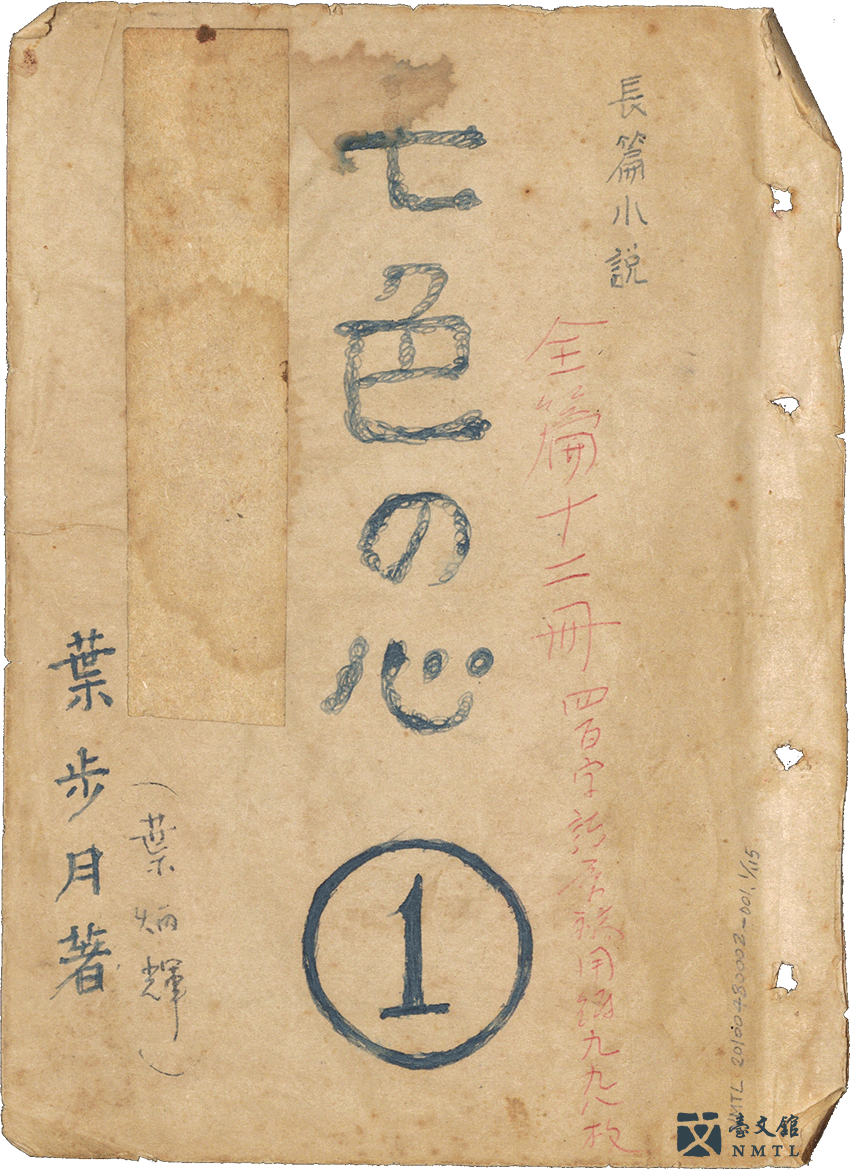 長篇小説
全篇十二冊 四百字詰原稿用紙九九八枚
七色の心
1
(葉炳輝)
葉步月著
NMTL 20100480002-001.1/15
臺文館
NMTL